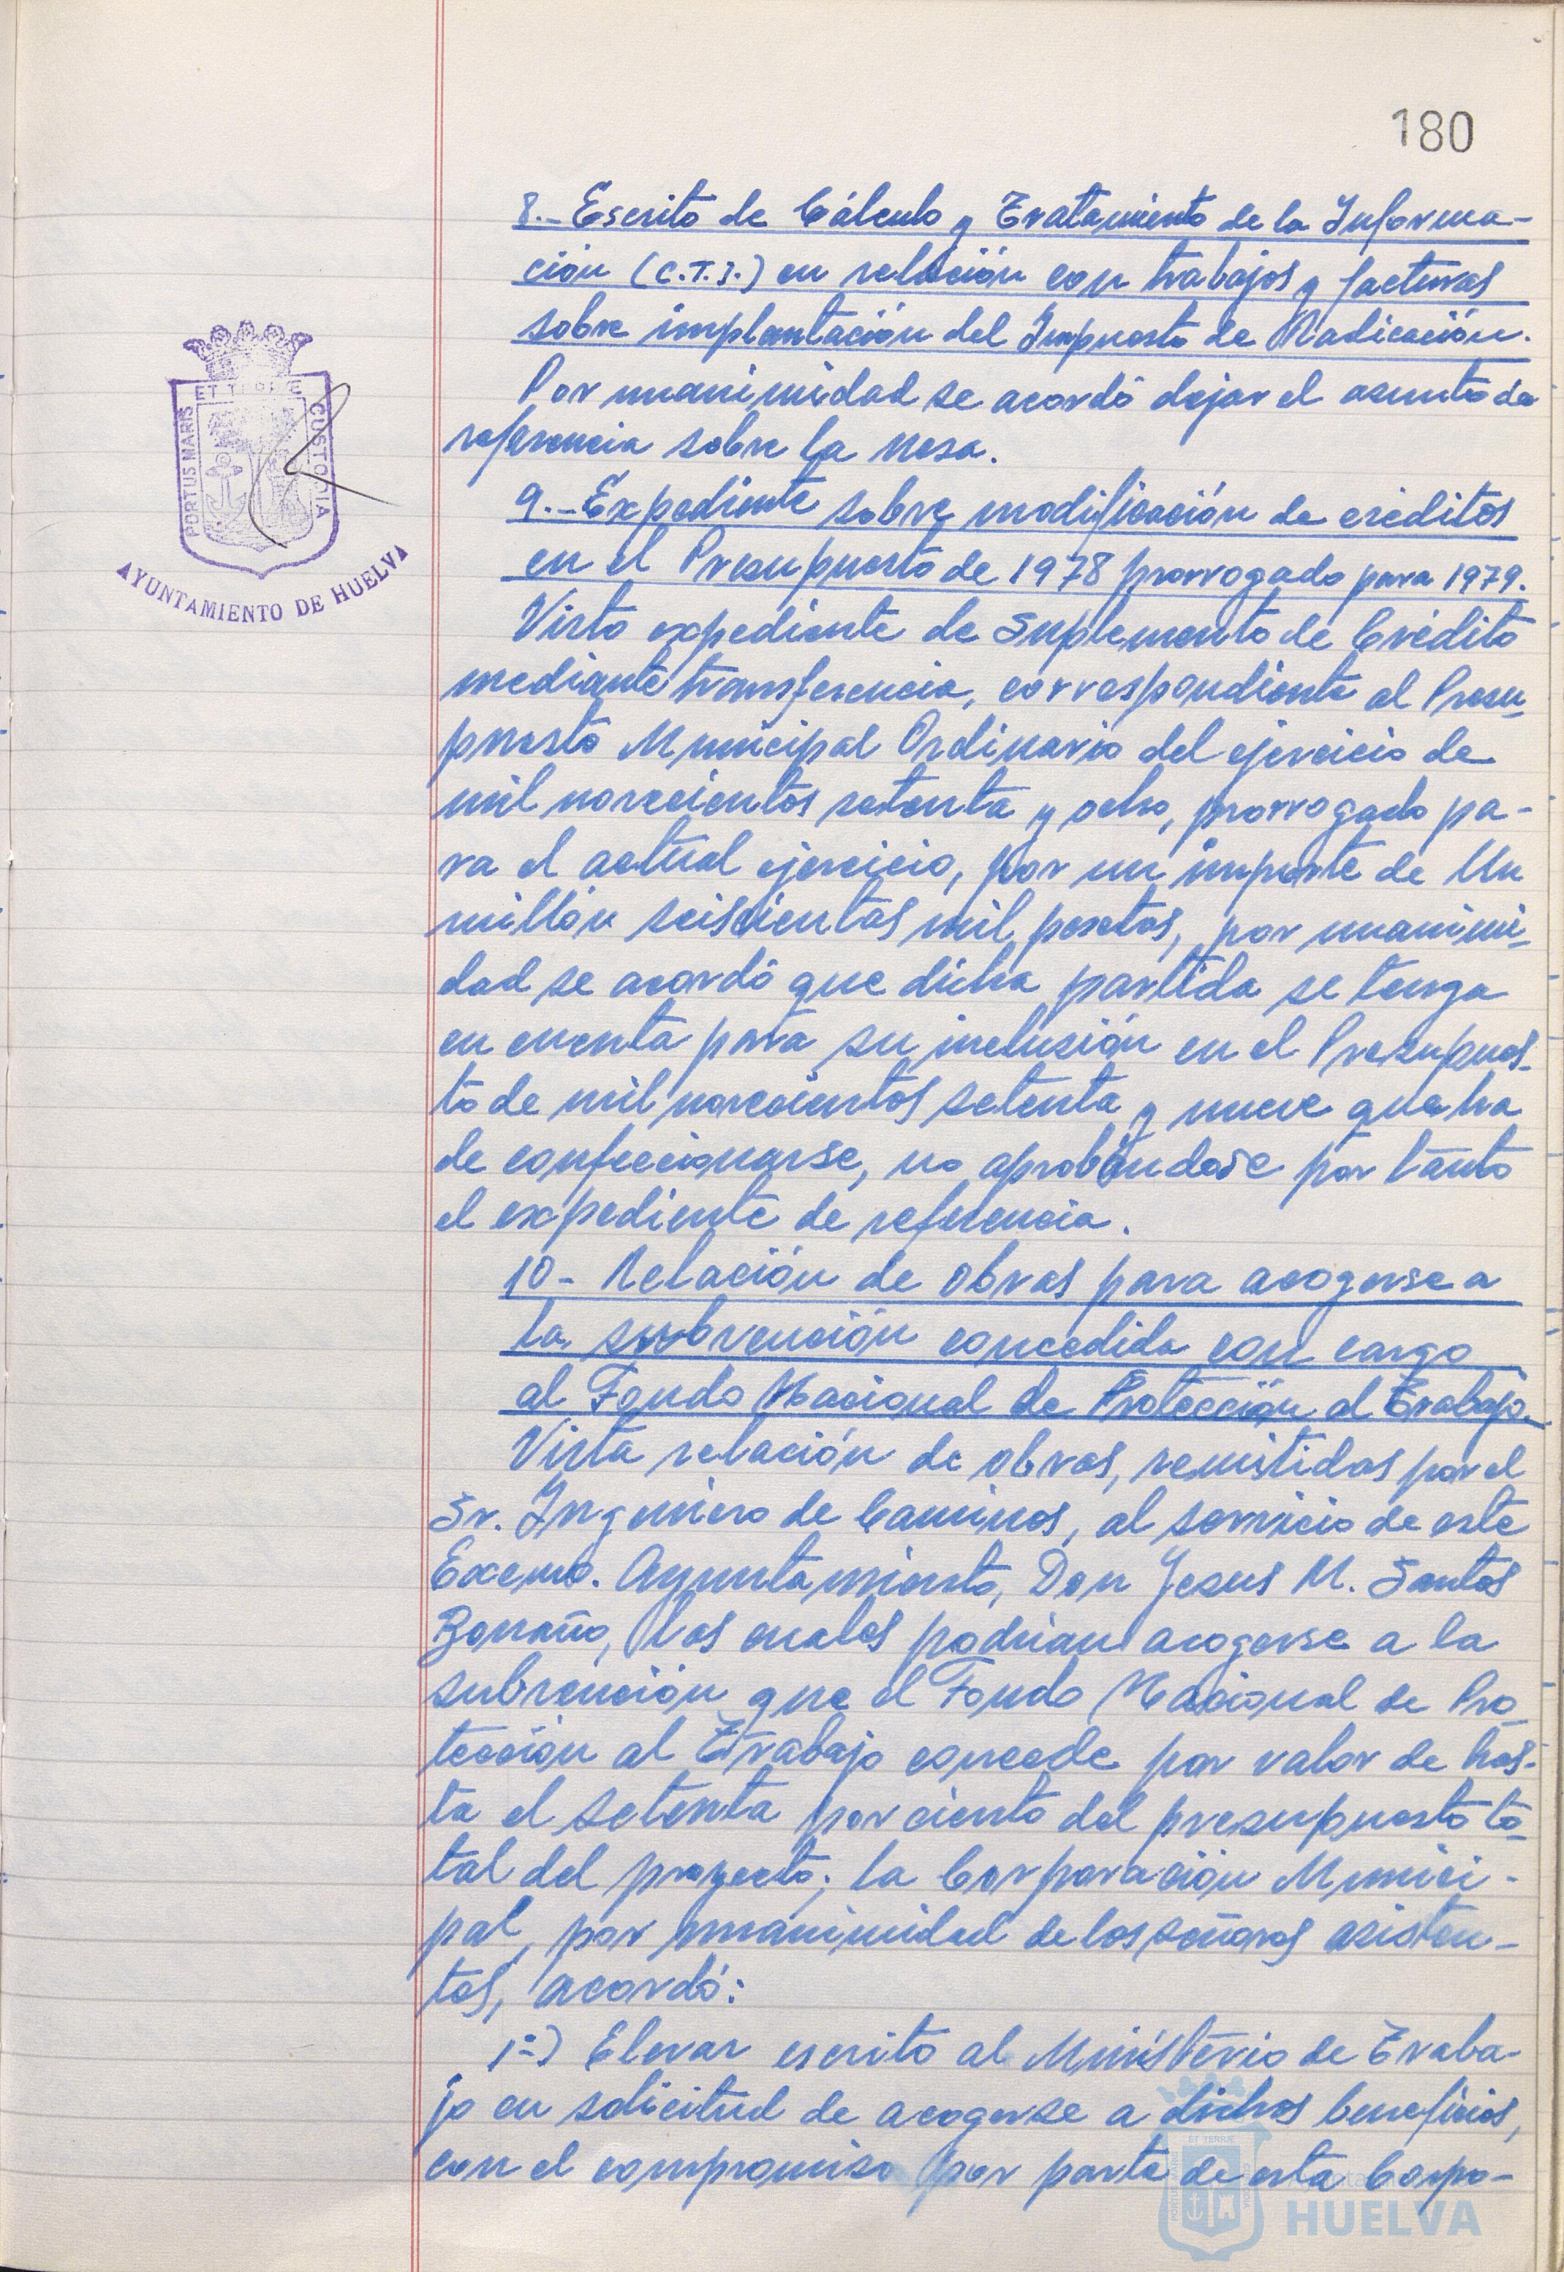 180
8.- Escrito de Cálculo y Tratamiento de la Informa-
ción (C.T.I.) en relación con trabajos y facturas
sobre implantación del Impuesto de Radicación.
Por unanimidad se acordó dejar el asunto de
referencia sobre la Mesa.
9.- Expediente sobre modificación de créditos
en el Presupuesto de 1978 prorrogado para 1979.
Visto expediente de Suplemento de Crédito
mediante transferencia, correspondiente al Presu-
puesto Municipal Ordinario del ejercicio de
mil novecientos setenta y ocho, prorrogado pa-
ra el actual ejercicio, por un importe de Un
millón seiscientas mil pesetas, por unanimi-
dad se acordó que dicha partida se tenga
en cuenta para su inclusión en el Presupues-
to de mil novecientos setenta y nueve que ha
de confeccionarse, no aprobándose por tanto
el expediente de referencia.
10- Relación de obras para acogerse a
la subvención concedida con cargo
al Fondo Nacional de Protección al Trabajo.
Vista relación de obras, remitidas por el
Sr. Ingeniero de Caminos, al servicio de este
Excmo. Ayuntamiento, Don Jesus M. Santos
las cuales podrian acogerse a la
subvención que el Fondo Nacional de Pro
tección al Trabajo concede por valor de has-
ta el setenta por ciento del presupuesto to-
tal del proyecto; la Corporación Munici-
pal, por unanimidad de los señores asisten-
tes, acordó:
1º) Elevar escrito al Ministerio de Traba-
jo en solicitud de acogerse a dichos beneficios,
con el compromiso por parte de esta Corpo-
ET TERRÆ
PORTUS MARIS
CUSTODIA
AYUNTAMIENTO DE HUELVA
HUELVA